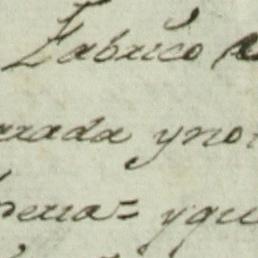 Fabrico
rrada y no
perra= y qu